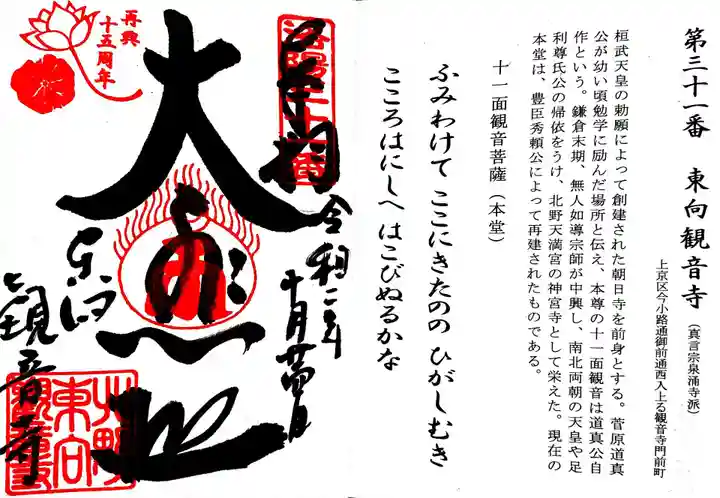 第三十一番 東向観音寺（真言宗泉涌寺派）
上京区今小路通御前通西入上る観音寺門前町
桓武天皇の勅願によって創建された朝日寺を前身とする。菅原道真
公が幼い頃勉学に励んだ場所と伝え、本尊の十一面観音は道真公自
作という。鎌倉末期、無人如導宗師が中興し、南北両朝の天皇や足
利尊氏公の帰依をうけ、北野天満宮の神宮寺として栄えた。現在の
本堂は、豊臣秀頼公によって再建されたものである。
十一面観音菩薩（本堂）
ふみわけて ここにきたのの ひがしむき
こころはにしへ はこびぬるかな
令和二年
十月廿四日
大悲
観音寺
再興
十五周年